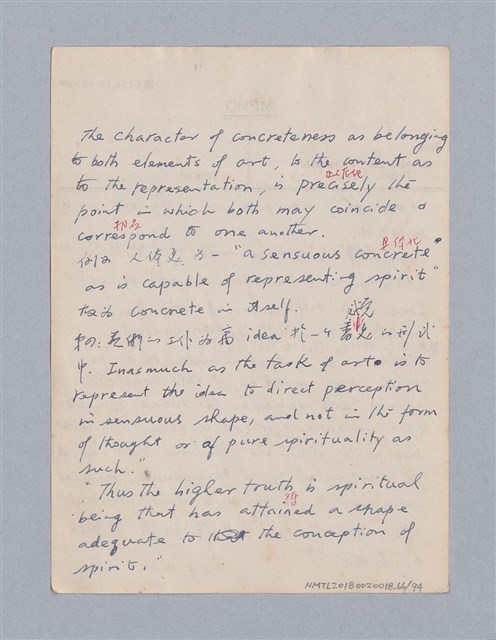 The character of concreteness as belonging
to both elements of art, to the content as
to the representation, is precisely the
point in which both may coincide &
correspond to one another.
相互
具体化
例如 人体是 为一 "a sensuous concrete"
as is capable of representing spirit"
concrete in itself.
idea 於一
中. Inasmuch as the task of art is to
represent the idea to direct perception
in sensuous shape, and not in the form
of thought or of pure spirituality as
such."
"Thus the higher truth is spiritual
being that has attained a shape
adequate to the conception of
spirit."
MEMO
NMTL20180020018.66/94